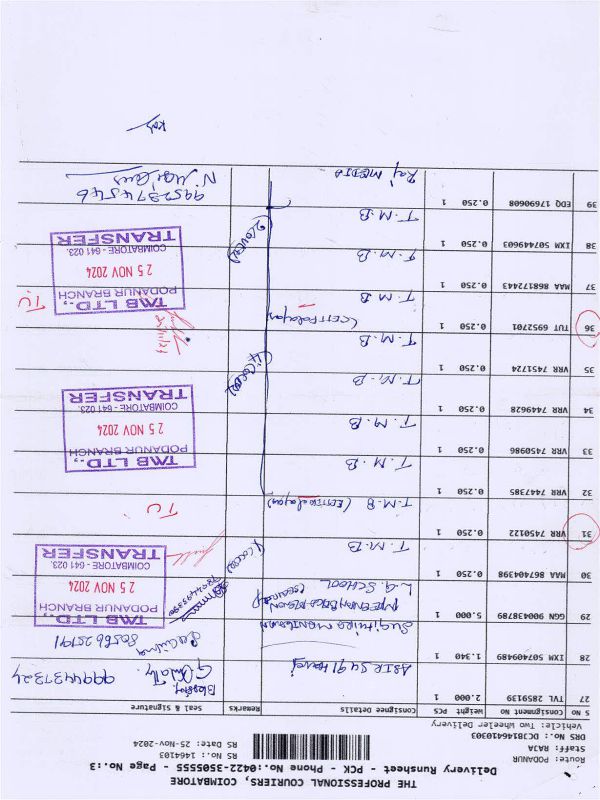 THE PROFESSIONAL COURIERS, COIMBATORE
Delivery Runsheet - PCK - Phone No.:0422-3505555 - Page No.:3
Route: PODANUR
Staff: RAJA
DRS No.: DC3B1464103O3
Vehicle: Two Wheeler Delivery
RS No.: 1464103
RS Date: 25-Nov-2024
S NO Consignment No Weight PCS Consignee Details Remarks Seal & Signature
27 TVL 2859139 2.000 1 9994437324
28 IXM 507409409 1.340 1 8056625191
29 GGN 900438789 5.000 1 L.G. SCHOOL
30 MAA 86704398 0.250 1 T.M.B
TMB LTD.,
PODANUR BRANCH
25 NOV 2024
COIMBATORE - 641 023.
TRANSFER
31 VRR 7450122 0.250 1 T.M.B
32 VRR 7447385 0.250 1 T.M.B
33 VRR 7450986 0.250 1 T.M.B
TMB LTD.,
PODANUR BRANCH
25 NOV 2024
COIMBATORE - 641 023.
TRANSFER
34 VRR 7449628 0.250 1 T.M.B
35 VRR 7451724 0.250 1 T.M.B
36 TUT 6952701 0.250 1 T.M.B
37 MAA 868172443 0.250 1 T.M.B
TMB LTD.,
PODANUR BRANCH
25 NOV 2024
COIMBATORE - 641 023.
TRANSFER
38 IXM 507449603 0.250 1 T.M.B
39 EDQ 17690608 0.250 1 Raj MEDIA 9952974546